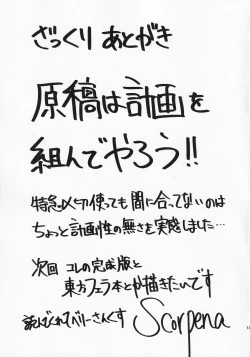 ざっくり あとがき
原稿は計画を
組んでやろう!!
特急〆切使っても間に合ってないのは
ちょっと計画性の無さを実感しました…
次回 コレの完成版と
東方フェラ本とか描きたいです
読んでくれてベリーさんくす
Scorpena